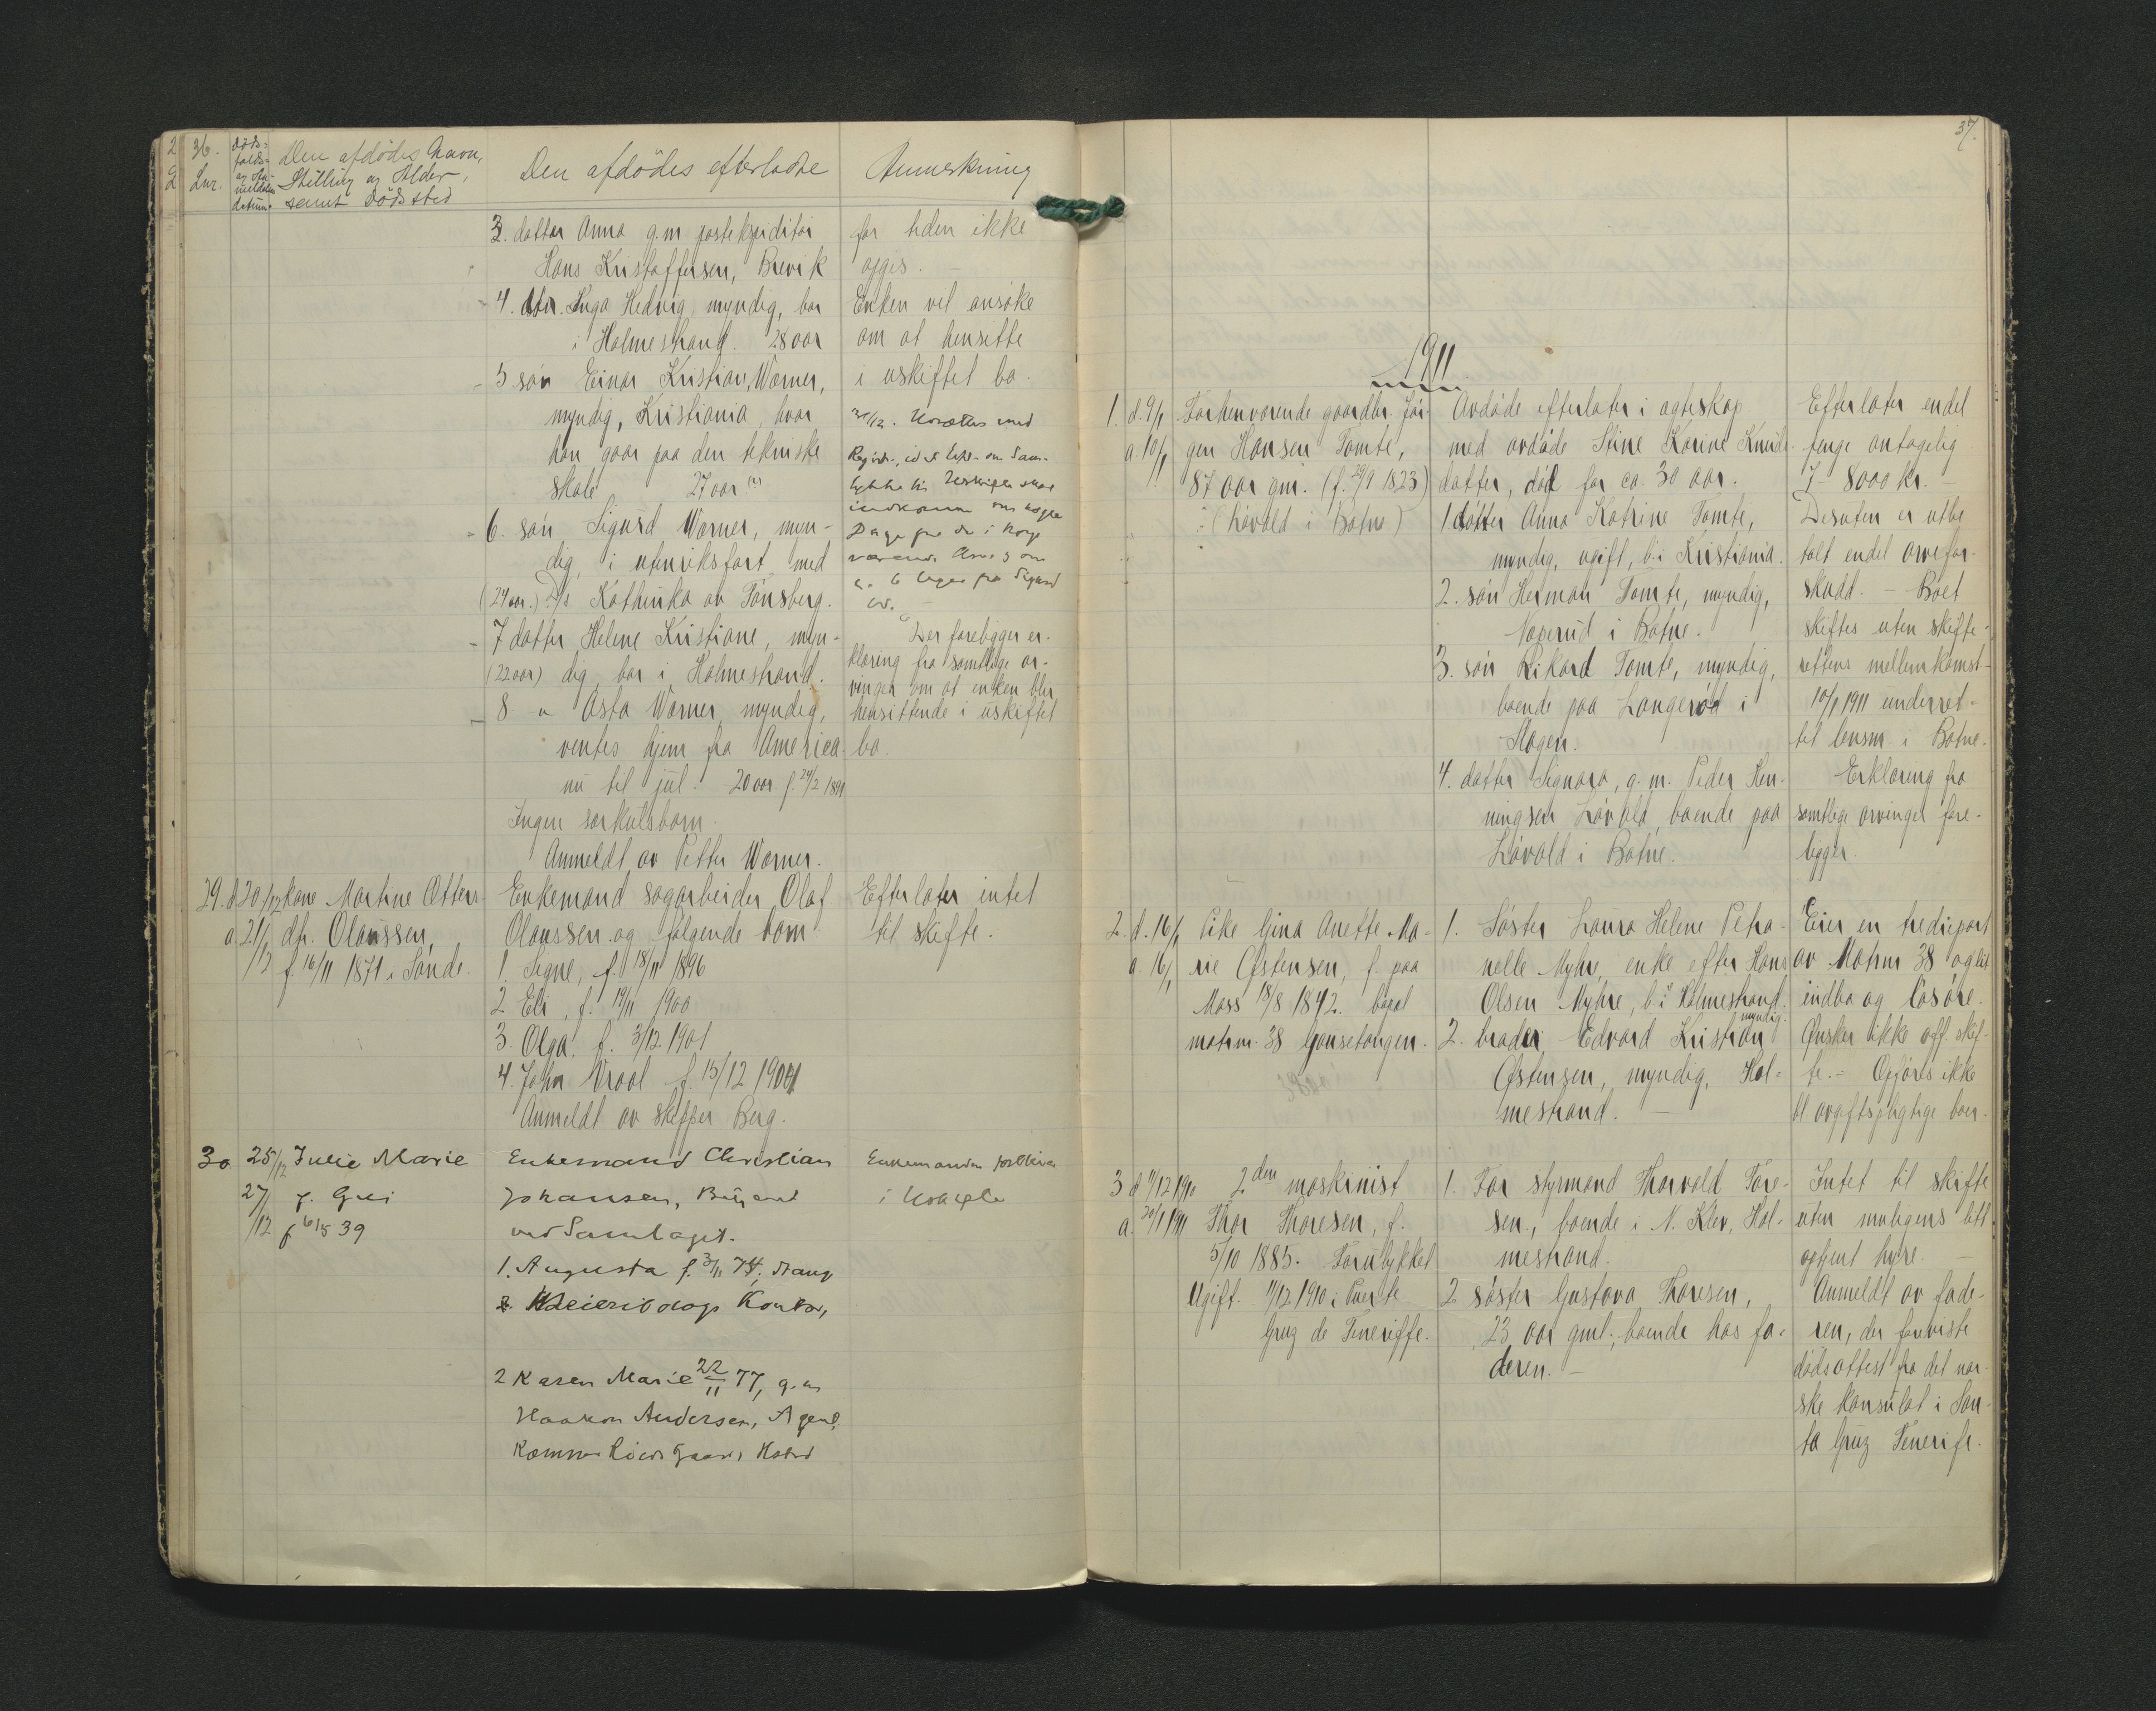 36.
Lnr.
Döds-
falds-
og An-
meldelses
datum.
Den afdödes Navn,
Stilling og Alder,
samt Dödssted
Den afdödes efterladte
Anmerkning
3. datter Anna g.m. postekspeditör
Hans Kristoffersen, Brevik
4. dtr. Inga Hedvig, myndig, bor
i Holmestrand. 28 aar
5 sön Einar Kristian Wærner,
myndig, Kristiania, hvor
han gaar paa den tekniske
skole 27 aar
6. sön Sigurd Wærner, myn-
dig, i utenriksfart med
(24 aar.) D/s Kathinka av Tönsberg.
7 datter Helene Kristiane, myn-
(22 aar) dig, bor i Holmestrand.
8 " Asta Wærner, myndig,
ventes hjem fra America
nu til jul. 20 aar f. 24/2 1890
Ingen særkulsbarn.
Anmeldt av Petter Wærner.
for tiden ikke
opgis. -
Enken vil ansöke
om at hensitte
i uskiftet bo.
Der foreligger er-
klæring fra samtlige ar-
vinger om at enken blir
hensittende i uskiftet
bo.
29. d 20/12 kone Martine Otters
a. 21/12 dtr. Olaussen,
f 16/11 1871 i Sande.
Enkemand sagarbeider Olaf
Olaussen og fölgende barn
1. Signe, f. 18/11 1896
2 Eli, f. 19/11 1900
3. Olga, f. 3/12 1901
4. John Vraal f. 15/12 1904
Anmeldt av skipper Berg.
Efterlater intet
til skifte.
30 25/12 Julie Marie
27/12 f.
f 6/5 39
Enkemand Christian
Johansen,
ved Samlaget.
1. Augusta f. 3/11 74,
Meieribolags Kontor,
2 Karen Marie 22/11 77, g.m
Haakon Andersen, Agent,
Enkemanden
i Uskifte
37.
1911
1. d. 9/1 Forhenværende gaardbr. Jör-
a. 10/1 gen Hansen Tomte,
87 aar gm. (f. 29/9 1823)
(Lövald i Botne)
Avdöde efterlater i egteskap
med avdöde Stine Karine Knuds-
datter, död for ca 30 aar.
1 datter Anna Katrine Tomte,
myndig, ugift, b. i Kristiania.
2. sön Herman Tomte, myndig,
i Botne.
3. sön Rikard Tomte, myndig,
boende paa Langeröd i
Slagen.
4. datter Signora, g.m. Peder Hen-
ningsen Lövald, boende paa
Lövald i Botne.
Efterlater endel
penge antagelig
7 - 8000 kr. -
Desuten er utbe
talt endel arvefor-
skudd. - Boet
skiftes uten skifte-
rettens mellemkomst -
10/1 1911 underret-
tet lensm. i Botne.
Erklæring fra
samtlige arvinger fore-
ligger.
2. d. 16/1 Pike Gina Anette Ma-
a. 16/1 rie Østensen, f. paa
Moss 18/8 1842. bopæl
matrnr. 38 Gausetangen.
1. Söster Laura Helene Petro-
nelle Myhre, enke efter Hans
Olsen Myhre, b. i Holmestrand.
2. broder Edvard Kristian
Østensen, myndig, Hol-
mestrand. -
Eier en tredjepart
av Matrnr 38 og litt
indbo og lösöre.
Ønsker ikke off. skif-
te. - Opföres ikke
bl. avgiftspligtige boer.
3 d 11/12 1910 2den maskinist
a. 20/1 1911 Thor Thoresen, f.
5/10 1885. Forulykket
Ugift. 11/12 1910 i Puerte
Gruz de Teneriffe.
1. Far styrmand Thorvald Tore-
sen, boende i N. Klev, Hol-
mestrand.
2 söster Gustava Thoresen,
23 aar gml., boende hos fa-
deren. -
Intet til skifte
uten muligens litt
optjent hyre. -
Anmeldt av fade-
ren, der foreviste
dödsattest fra det nor-
ske konsulat i San-
ta Gruz Tenerife.